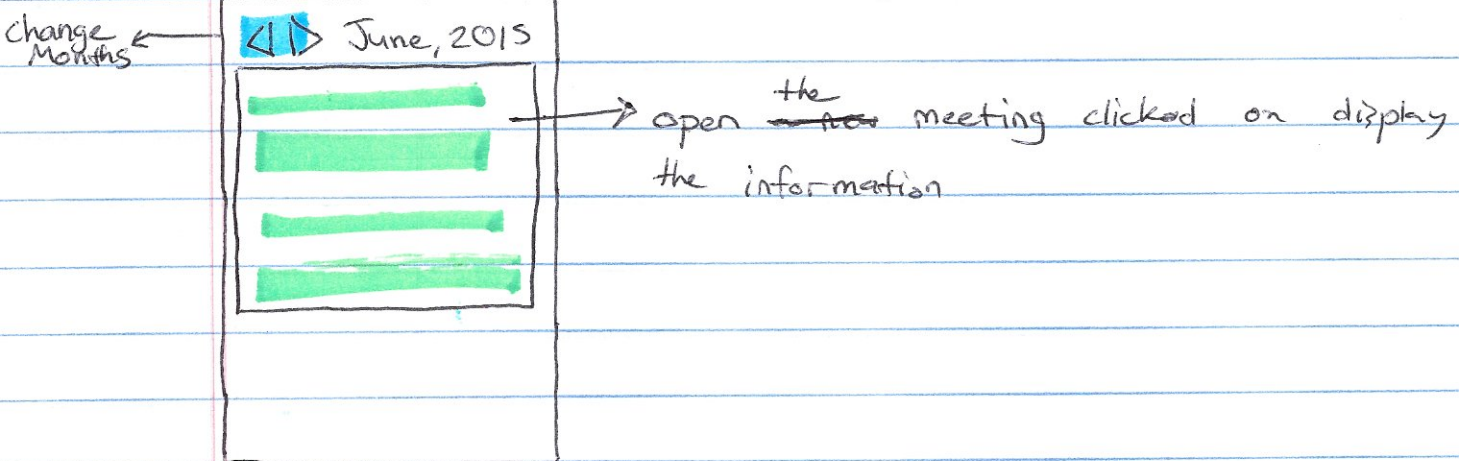 Change
Months
June, 2015
open the meeting clicked on display
the information